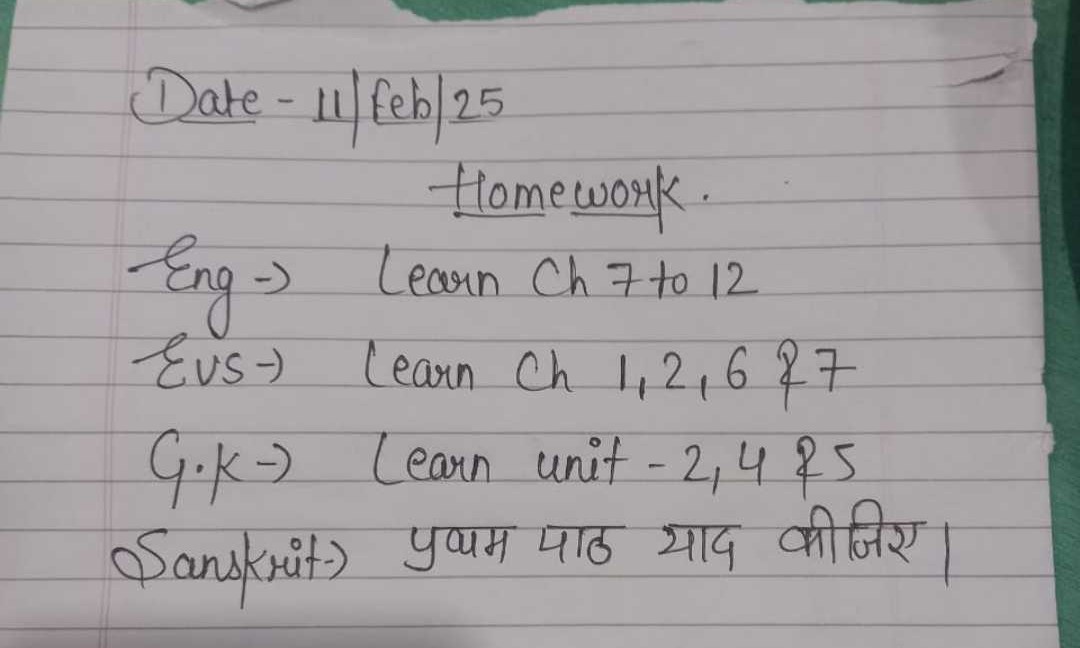 Date - 11/Feb/25
Homework.
Eng → Learn Ch 7 to 12
Evs → Learn Ch 1, 2, 6 & 7
G.K → Learn unit - 2, 4 & 5
Sanskrit → प्रथम पाठ याद कीजिए।